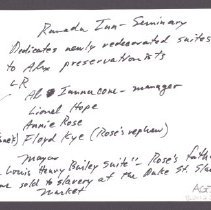 Ramada Inn - Seminary
Dedicates newly redecorated suites
to Alex preservationists
L-R
Al Iannucone - manager
Lionel Hope
Annie Rose
Floyd Kye (Rose's nephew)
Mayor
Louis Henry Bailey Suite" - Rose's fath
sold to slavery at the Duke St. Slav
Market